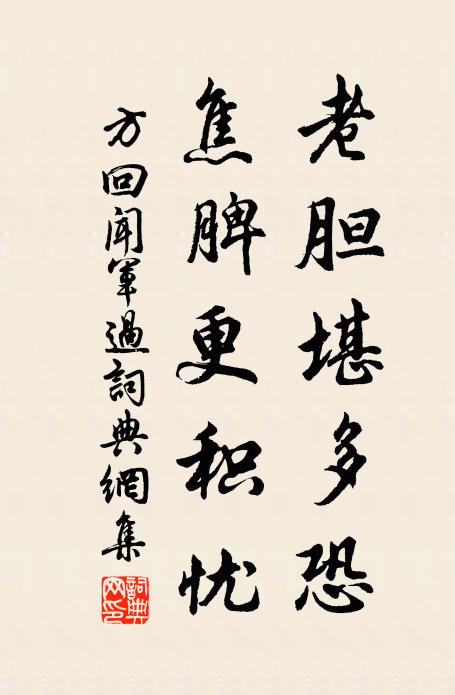 老胆堪多恐
焦脾更积忧
方回闻軍過詞典網集
詞典網印